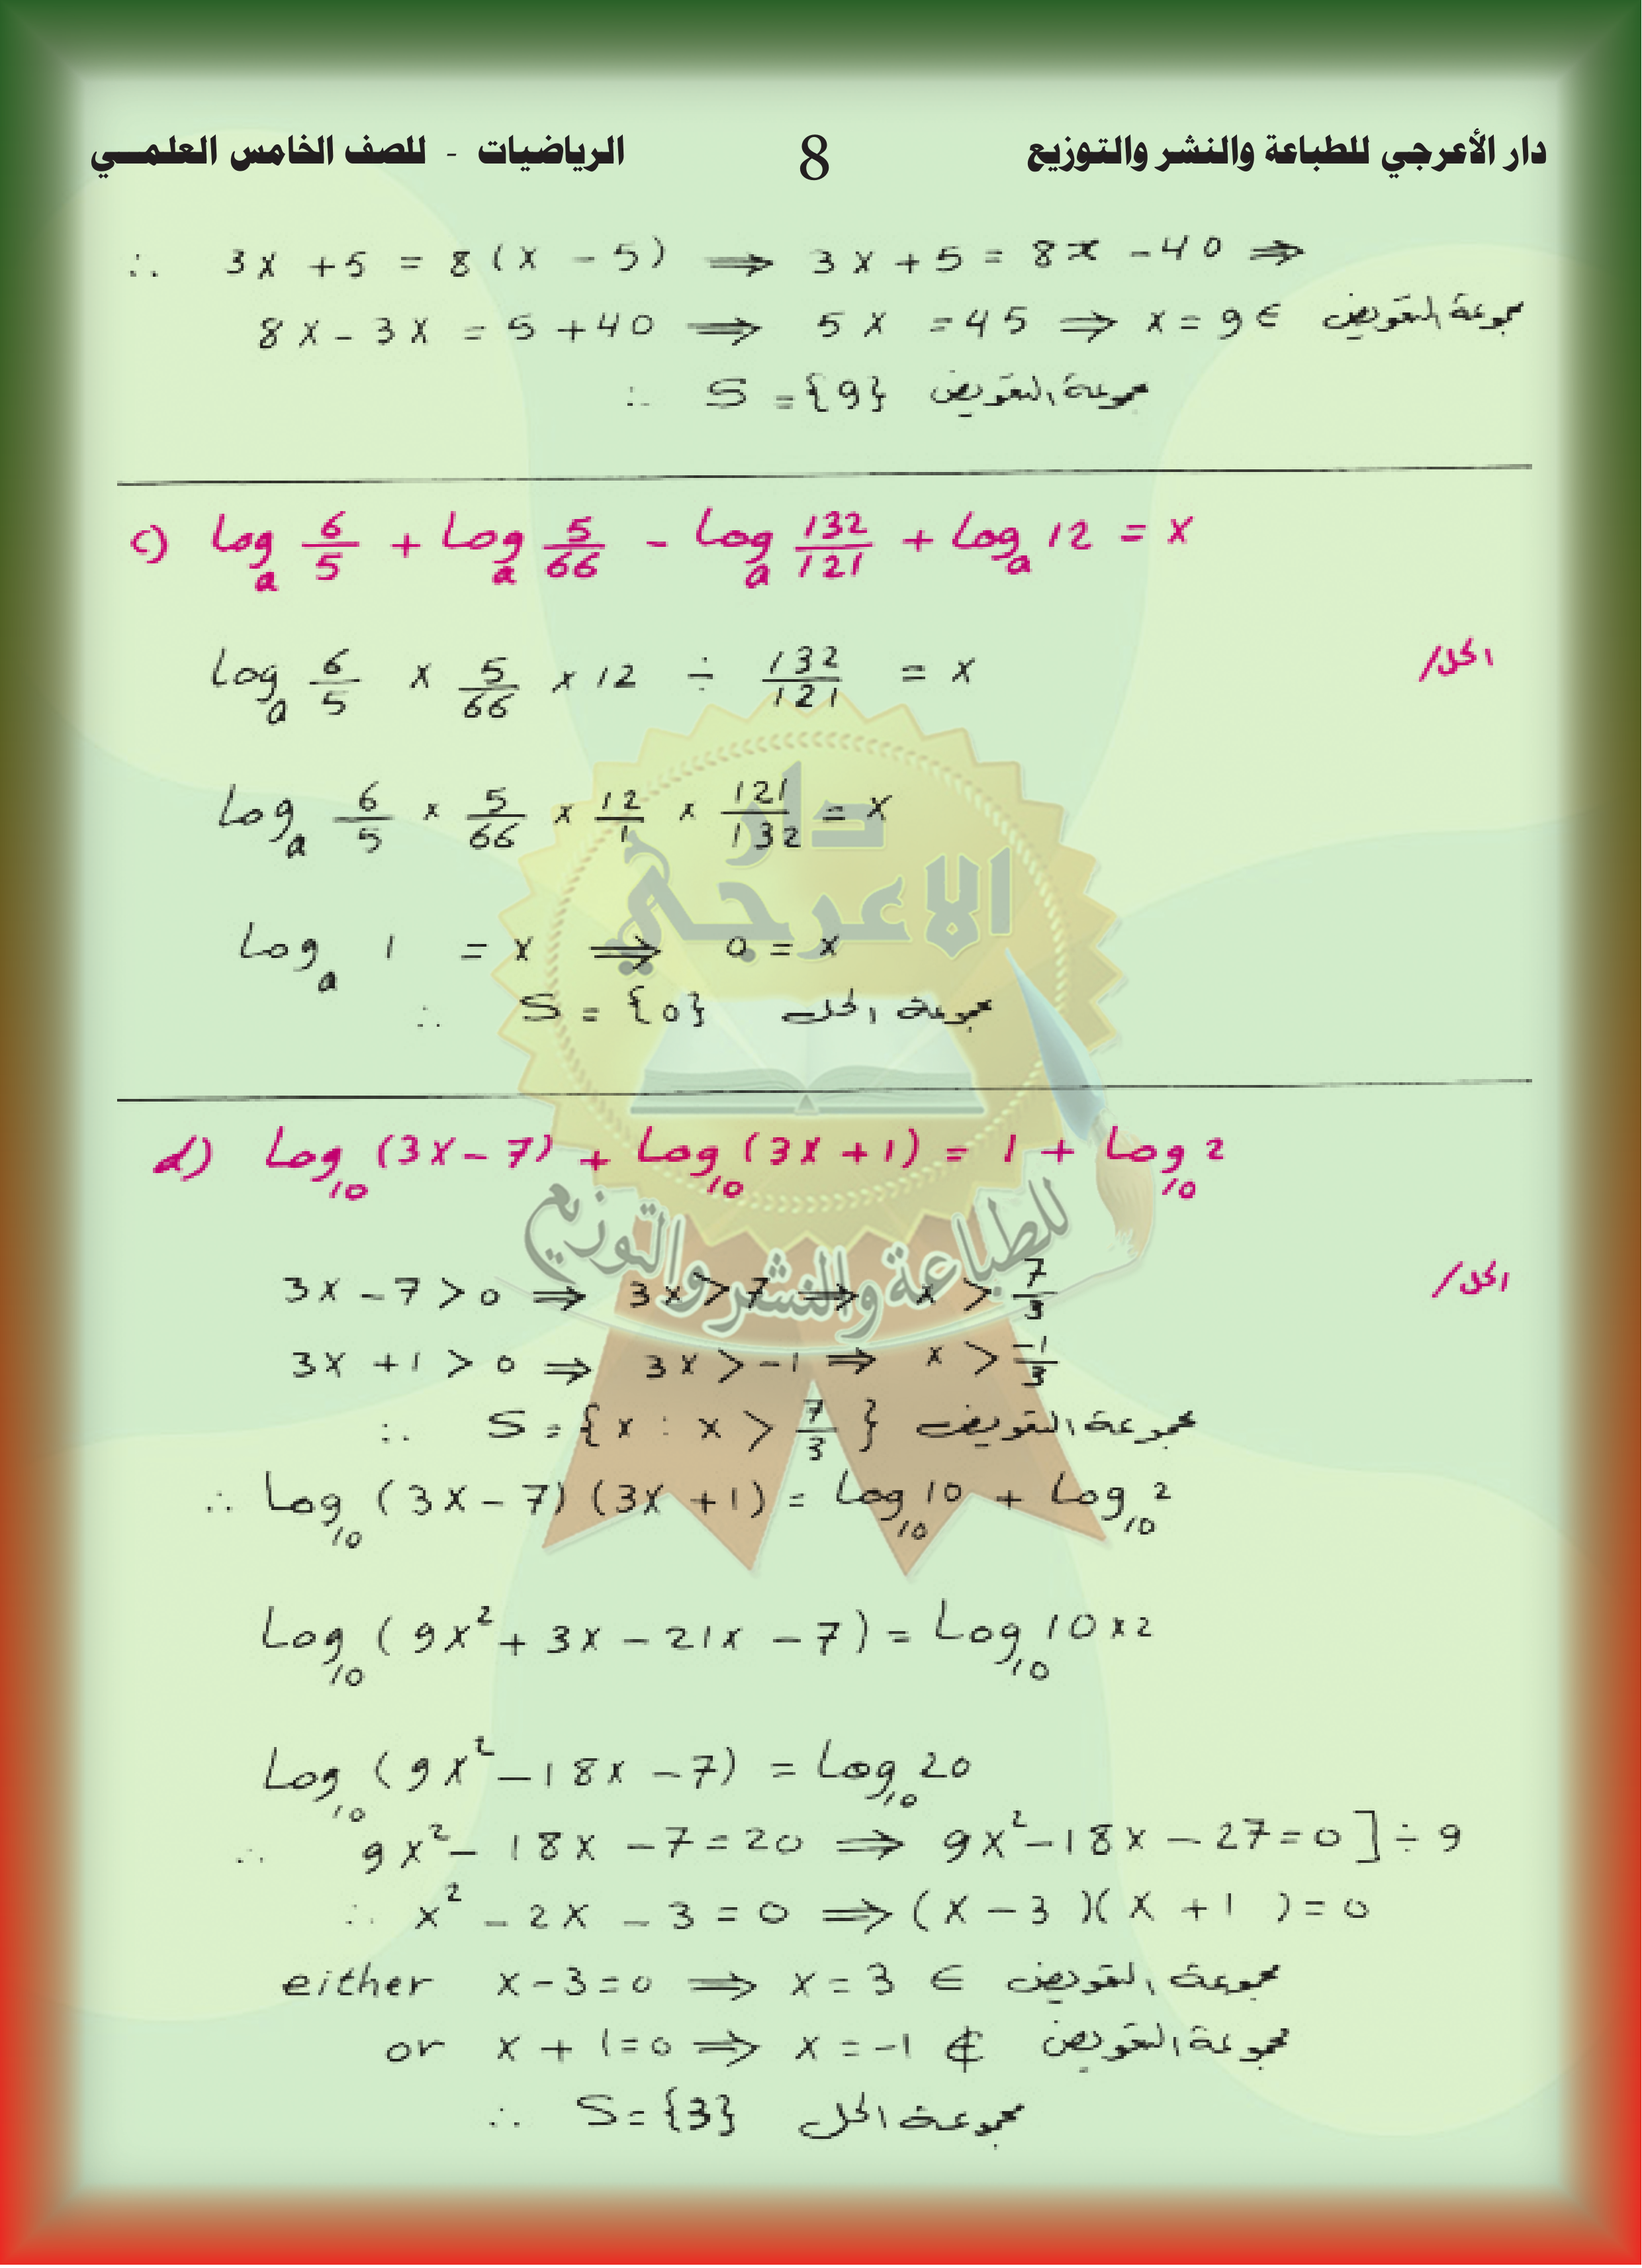 دار الأعرجي للطباعة والنشر والتوزيع 8 الرياضيات - للصف الخامس العلمي
∴ 3x + 5 = 8(x - 5) ⟹ 3x + 5 = 8x - 40 ⟹
8x - 3x = 5 + 40 ⟹ 5x = 45 ⟹ x = 9 ∈ مجموعة التعويض
∴ S = {9} مجموعة التعويض
c) Log_a 6/5 + Log_a 5/66 - Log_a 132/121 + Log_a 12 = x
الحل/
Log_a 6/5 × 5/66 × 12 ÷ 132/121 = x
Log_a 6/5 × 5/66 × 12/1 × 121/132 = x
Log_a 1 = x ⟹ 0 = x
∴ S = {0} مجموعة الحل
d) Log_10 (3x - 7) + Log_10 (3x + 1) = 1 + Log_10 2
الحل/
3x - 7 > 0 ⟹ 3x > 7 ⟹ x > 7/3
3x + 1 > 0 ⟹ 3x > -1 ⟹ x > -1/3
∴ S = {x : x > 7/3} مجموعة التعويض
∴ Log_10 (3x - 7)(3x + 1) = Log_10 10 + Log_10 2
Log_10 (9x² + 3x - 21x - 7) = Log_10 10 × 2
Log_10 (9x² - 18x - 7) = Log_10 20
∴ 9x² - 18x - 7 = 20 ⟹ 9x² - 18x - 27 = 0 ] ÷ 9
∴ x² - 2x - 3 = 0 ⟹ (x - 3)(x + 1) = 0
either x - 3 = 0 ⟹ x = 3 ∈ مجموعة التعويض
or x + 1 = 0 ⟹ x = -1 ∉ مجموعة التعويض
∴ S = {3} مجموعة الحل
دار
الاعرجي
للطباعة والنشر والتوزيع